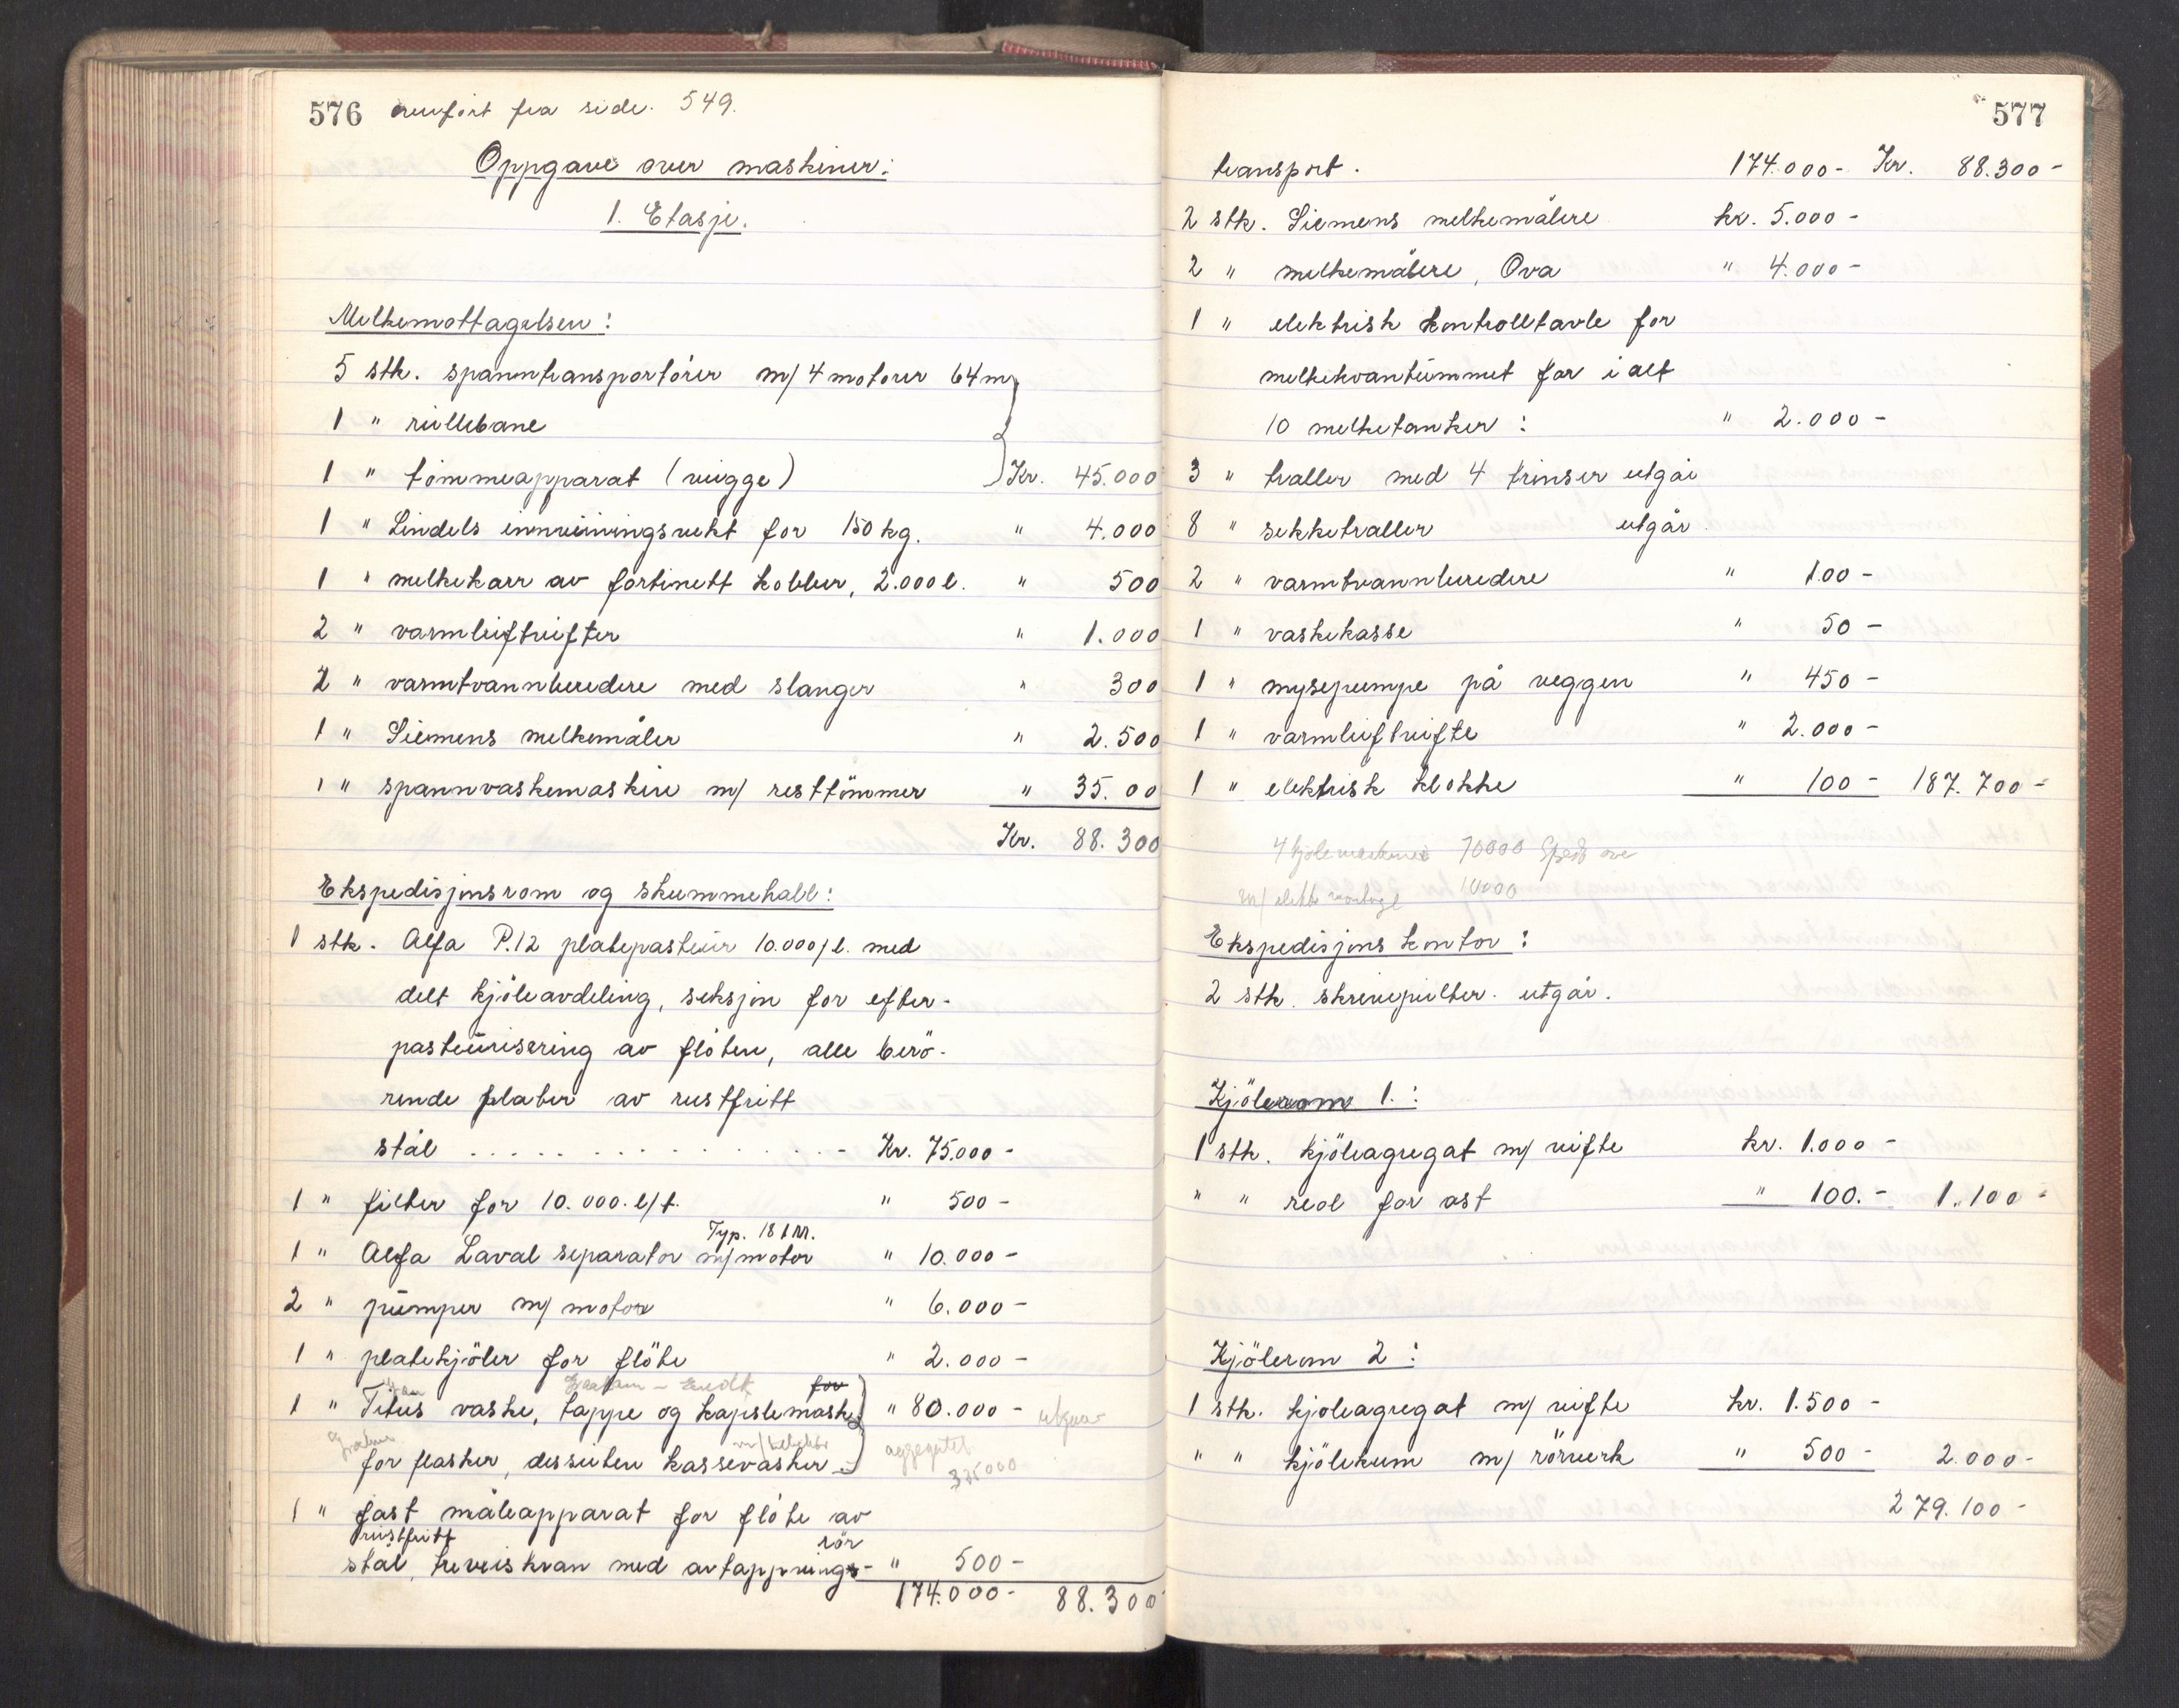 576 fra side. 549.
Oppgave over maskiner:
1. Etasje.
Melkemottagelsen:
5 stk. spanntransportörer m/ 4 motorer 64 m
1 " rullebane
1 " tömmeapparat (vugge) Kr. 45.000
1 " Lindels innveiningsvekt for 150 kg. " 4.000
1 " melkekarr av fortinett kobber, 2.000 l. " 500
2 " varmluftvifter " 1.000
2 " varmtvannberedere med slanger " 300
1 " Siemens melkemåler " 2.500
1 " spannvaskemaskin m/ resttömmer " 35. 00
Kr. 88.300
Ekspedisjonsrom og skummehall:
1 stk. Alfa P.12 platepasteur 10.000/l. med
delt kjöleavdeling, seksjon for efter-
pasteurisering av flöten, alle berö-
rende plater av rustfritt
stål . . . . . . . . . . . . . . - Kr. 75.000 -
1 " filter for 10.000. l/t. " 500 -
Typ. 181 M.
1 " Alfa Laval separator m/motor " 10.000 -
2 " pumper m/ motor " 6.000 -
1 " platekjöler for flöte " 2.000 -
for
1 " Titus vaske, tappe og kapslemask. " 80.000 - utgaar
for flasker, dessuten kassevasker - aggregatet
325000
1 " fast måleapparat for flöte av
rustfritt rör
stål, treveiskran med avtappnings- " 500 -
174.000 - 88.300
577
transport. 174.000 - Kr. 88.300 -
2 stk. Siemens melkemålere kr. 5.000 -
2 " melkemålere, Ova " 4.000 -
1 " elektrisk kontrolltavle for
melkekvantummet for i alt
10 melketanker : " 2.000 -
3 " traller med 4 trinser utgår
8 " sekketraller utgår
2 " varmtvannberedere " 100 -
1 " vaskekasse " 50 -
1 " mysepumpe på veggen " 450 -
1 " varmluftvifte " 2.000 -
1 " elektrisk klokke " 100 - 187.700 -
4 kjölemaskiner 70000
m/ elektr montage 10000
Ekspedisjons kontor :
2 stk. skrivepulter. utgår.
Kjölerom 1. :
1 stk. kjöleagregat m/ vifte kr. 1.000 -
" " reol for ost " 100. - 1.100 -
Kjölerom 2 :
1 stk. kjöleagregat m/ vifte kr. 1.500 -
" " kjölekum m/ rörverk " 500 - 2.000 -
279.100 -